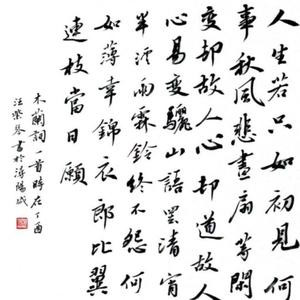 人生若只如初見何
事秋風悲畫扇等閑
變却故人心却道故人
心易變驪山語罷清宵
半淚雨霖鈴終不怨何
如薄幸錦衣郎比翼
連枝當日願
木蘭詞一首時在丁酉
汪榮琴書於潯陽城